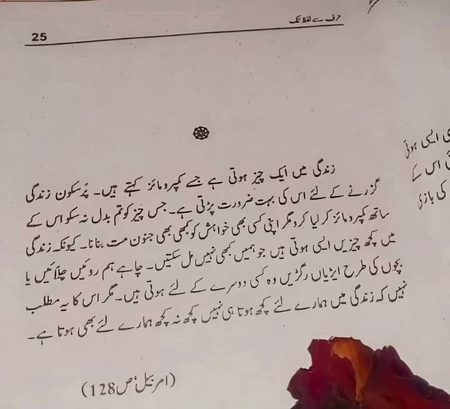 حرف سے لفظ تک
25
زندگی میں ایک چیز ہوتی ہے جسے کمپرومائز کہتے ہیں۔ پُرسکون زندگی
گزرنے کے لئے اس کی بہت ضرورت پڑتی ہے۔ جس چیز کو تم بدل نہ سکو اس کے
ساتھ کمپرومائز کر لیا کرو مگر اپنی کسی بھی خواہش کو کبھی بھی جنون مت بنانا۔ کیونکہ زندگی
میں کچھ چیزیں ایسی ہوتی ہیں جو ہمیں کبھی نہیں مل سکتیں۔ چاہے ہم روئیں چلائیں یا
بچوں کی طرح ایڑیاں رگڑیں وہ کسی دوسرے کے لئے ہوتی ہیں۔ مگر اس کا یہ مطلب
نہیں کہ زندگی میں ہمارے لئے کچھ ہوتا ہی نہیں کچھ نہ کچھ ہمارے لئے بھی ہوتا ہے۔
(امر بیل ؑص 128)
ی ایسی ہوتی
اس کے
کی بازی